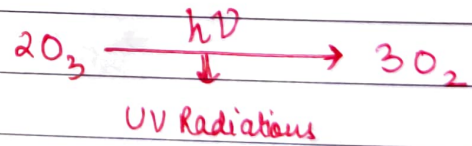 hν
2O₃ ⟶ 3O₂
UV Radiations